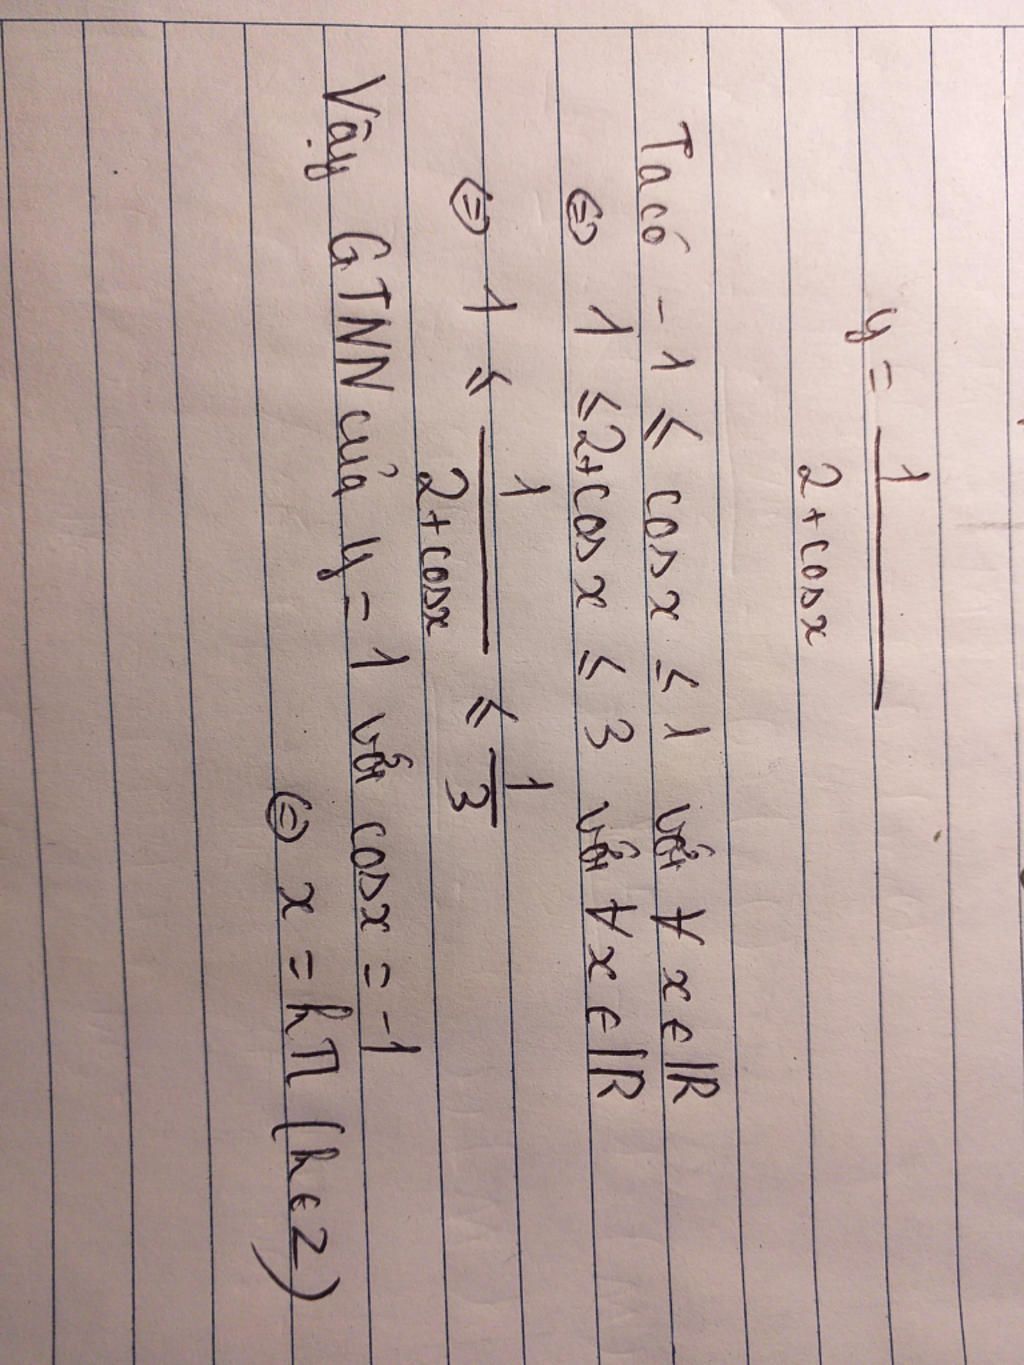 y = 1/(2+cosx)
Ta có -1 ≤ cosx ≤ 1 với ∀x∈ℝ
⇔ 1 ≤ 2+cosx ≤ 3 với ∀x∈ℝ
⇔ 1 ≤ 1/(2+cosx) ≤ 1/3
Vậy GTNN của y = 1 với cosx = -1
⇔ x = kπ (k∈Z)